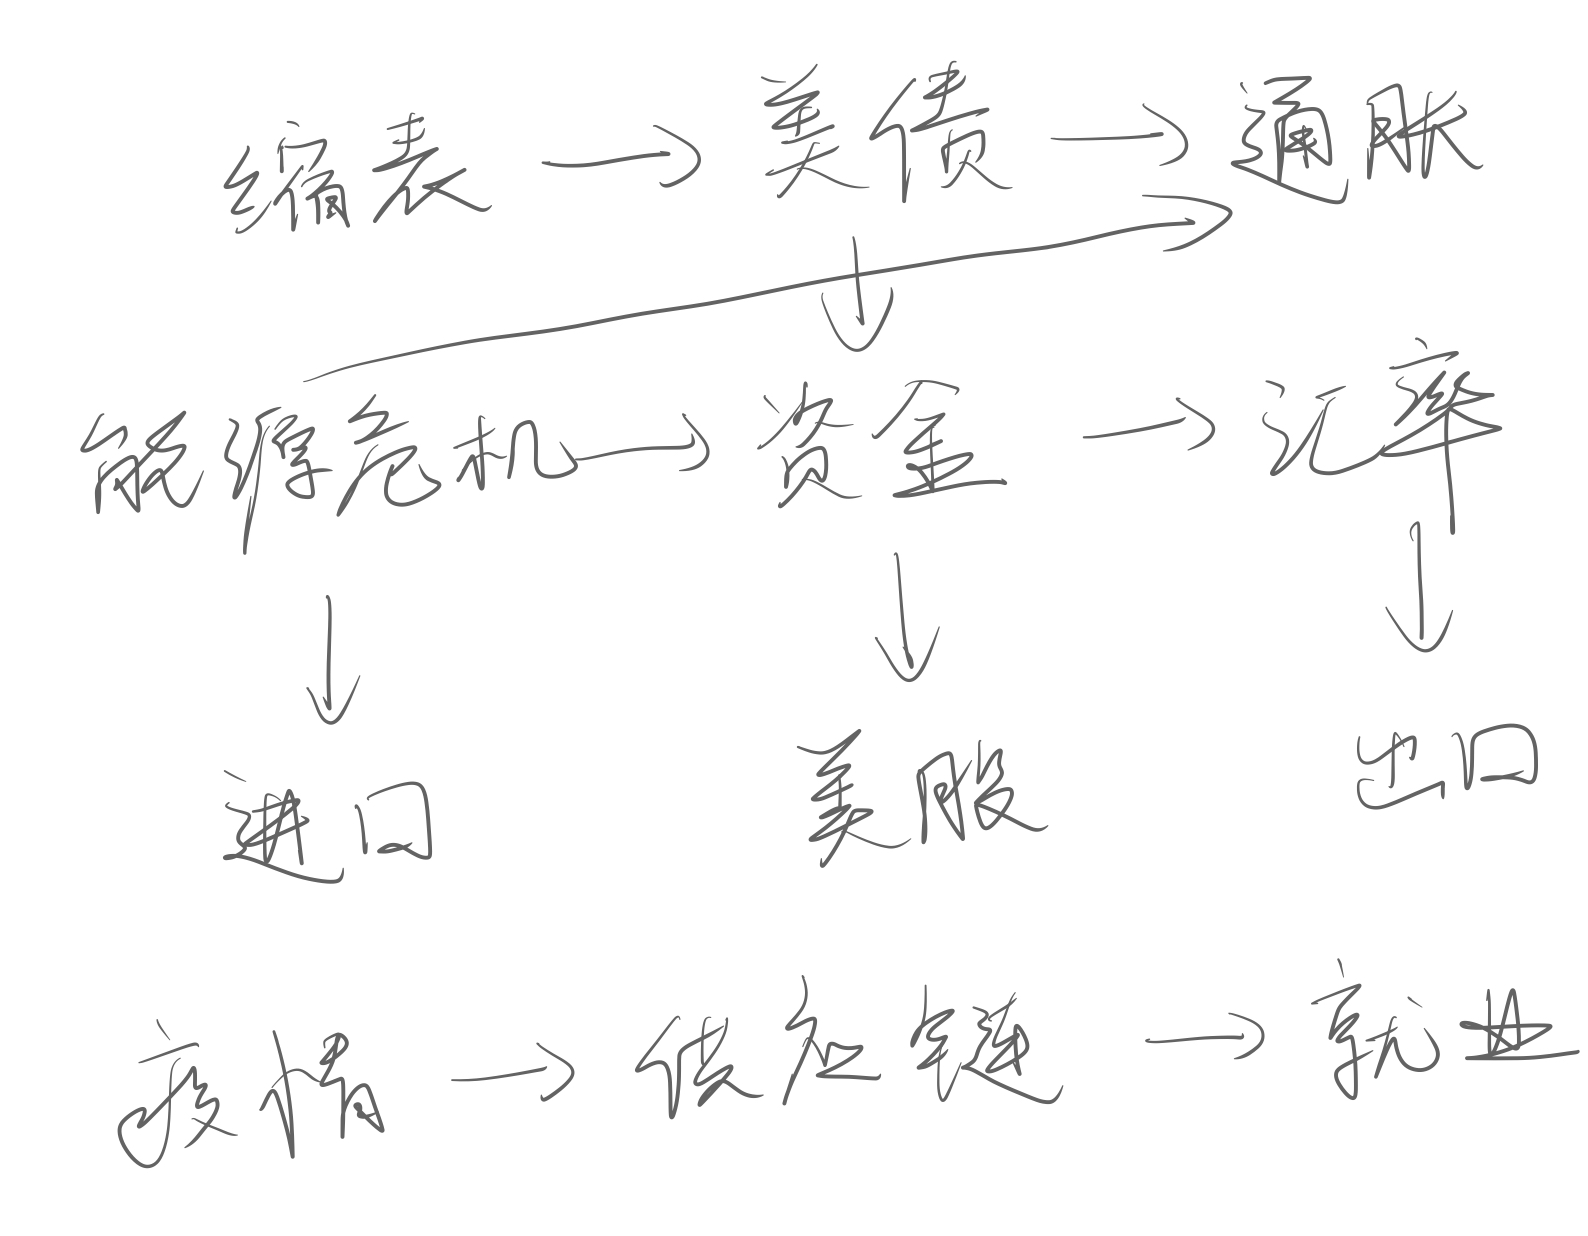 缩表 → 美债 → 通胀
能源危机 → 资金 → 汇率
进口 美股 出口
疫情 → 供应链 → 就业